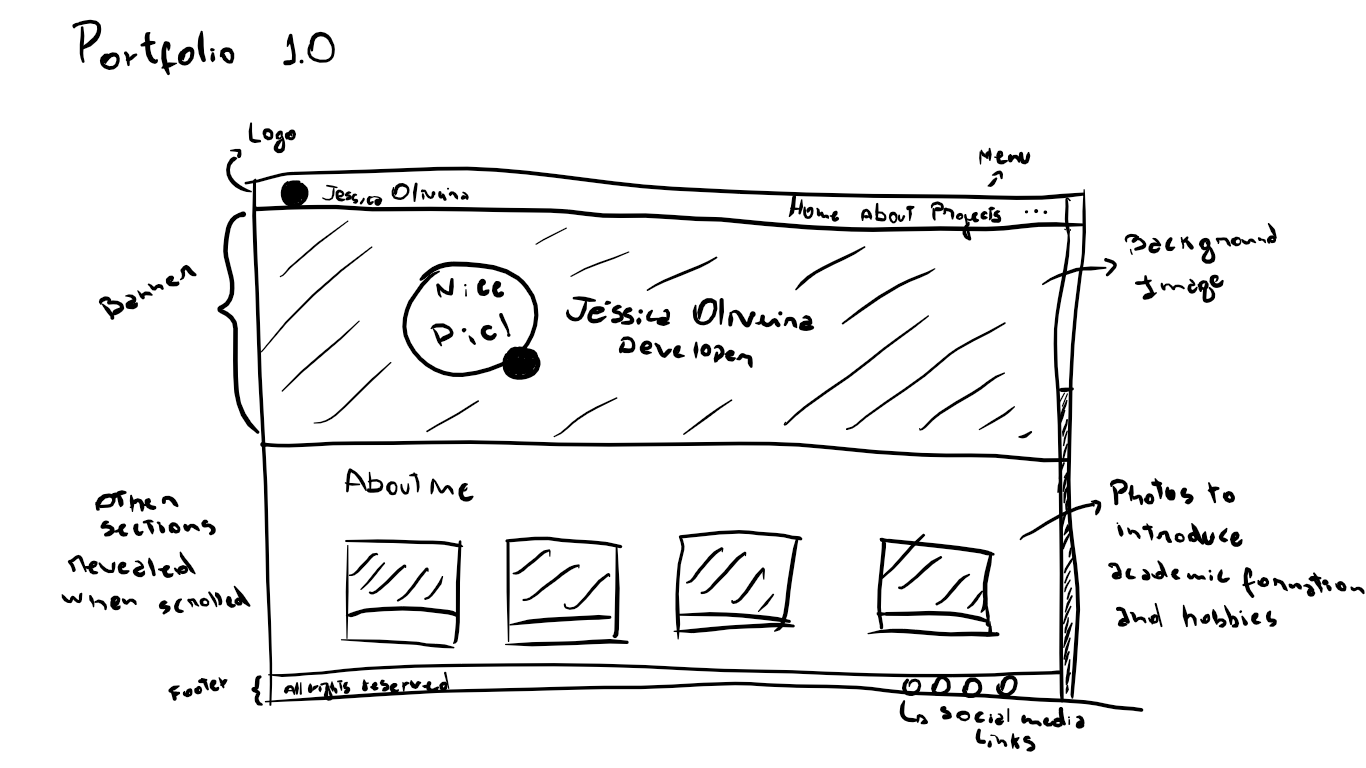 Portfolio 1.0
Logo
Menu
Jessica Oliveira
Home About Projects ...
Banner
Background
Image
Nice
Pic!
Jéssica Oliveira
Developer
About me
Other
sections
revealed
when scrolled
Photos to
introduce
academic formation
and hobbies
Footer
All rights reserved
social media
Links